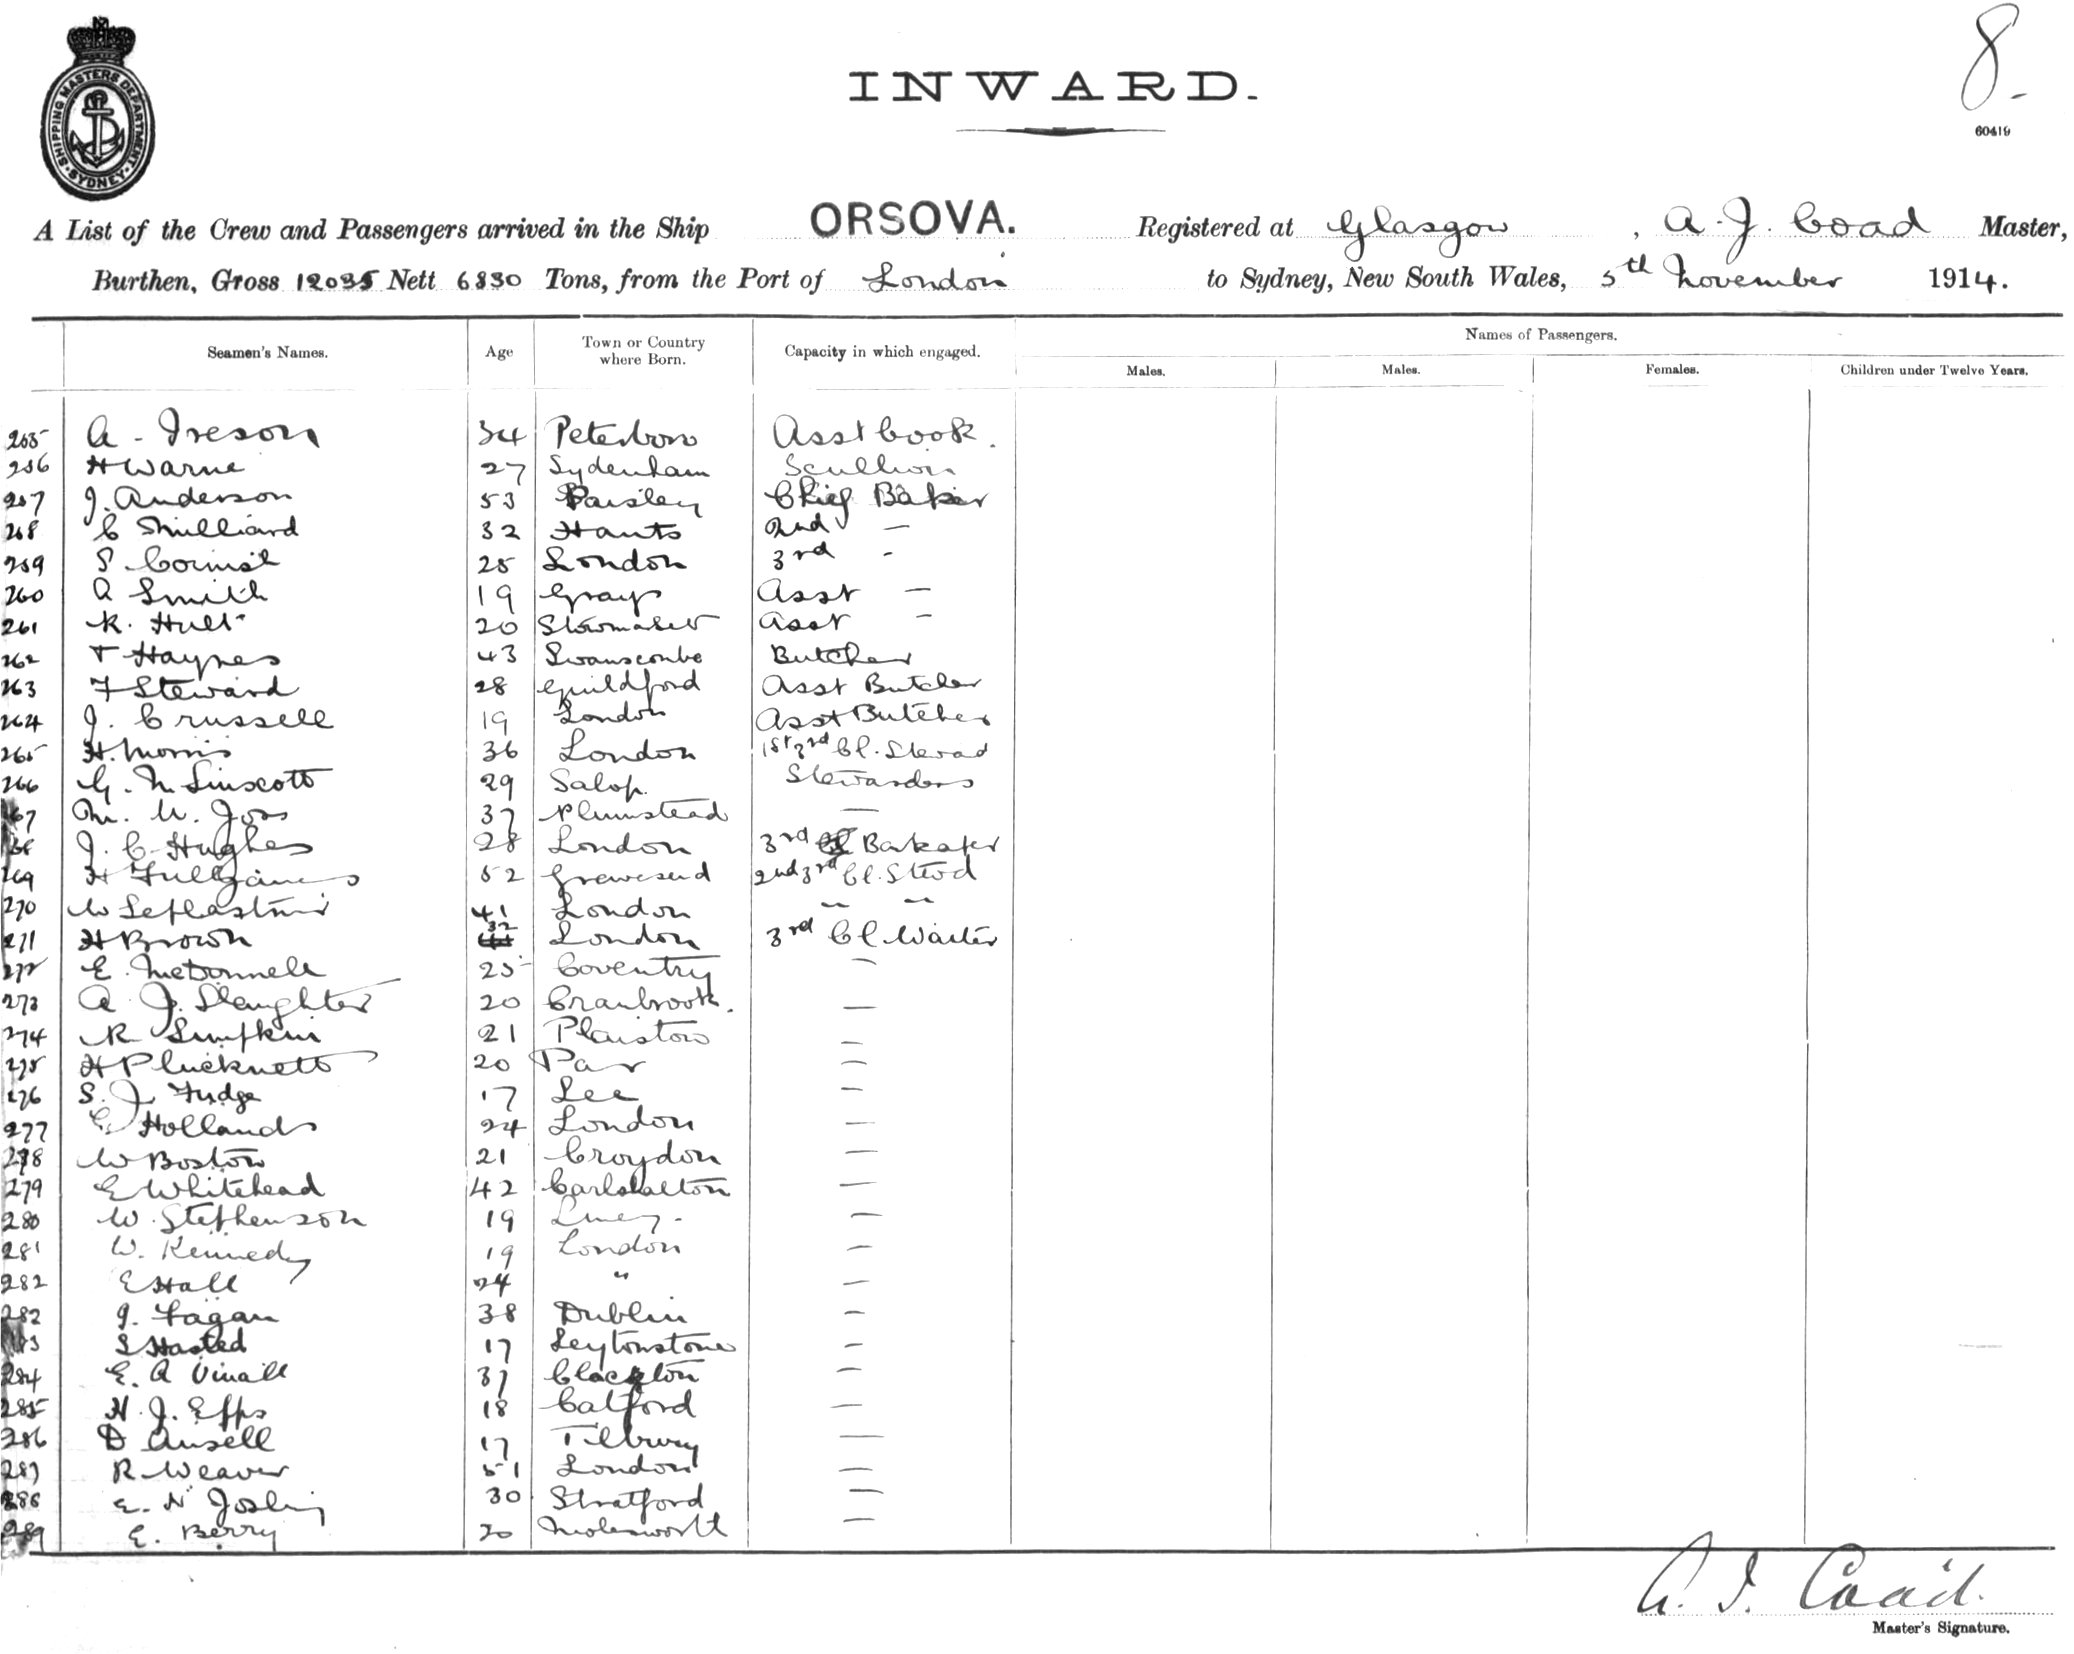 SHIPPING MASTERS DEPARTMENT SYDNEY
8
INWARD.
60419
A List of the Crew and Passengers arrived in the Ship ORSOVA. Registered at Glasgow, A. J. Coad Master,
Burthen, Gross 12035 Nett 6830 Tons, from the Port of London to Sydney, New South Wales, 5th November 1914.
Seamen's Names. Age Town or Country where Born. Capacity in which engaged. Names of Passengers.
Males. Males. Females. Children under Twelve Years.
255 A. Ireson 34 Peterboro Asst Cook.
256 H Warne 27 Sydenham Scullion
257 J. Anderson 53 Paisley Chief Baker
258 C 32 Hants 2nd —
259 S Cornish 25 London 3rd -
260 A Smith 19 Grays Asst —
261 R. Hult 20 Asst —
262 T Haynes 43 Swanscombe Butcher
263 F Steward 28 Guildford Asst Butcher
264 J. Crussell 19 London Asst Butcher
265 H. Morris 36 London 1st 3rd Cl. Steward
266 G. M Linscott 29 Salop. Stewardess
267 M. U. Joss 37 Plumstead —
268 J. C. Hughes 28 London 3rd Barkeeper
269 H Fulljames 52 Gravesend 2nd 3rd Cl. Stewd
270 W Leplastrier 41 London " "
271 H Brown 32 London 3rd Cl. Waiter
272 E. McDonnell 25 Coventry —
273 A. J. Slaughter 20 Cranbrook. —
274 R Lumpkin 21 Plaistow —
275 H Plucknett 20 Par —
276 S. J. Fudge 17 Lee —
277 C Hollands 24 London —
278 W Boston 21 Croydon —
279 E Whitehead 42 Carlshalton —
280 W. Stephenson 19 —
281 W. Kennedy 19 London —
282 E Hall 24 " —
282 J. Fagan 38 Dublin —
283 S Hasted 17 Leytonstone —
284 E. A Vinall 37 Clackton —
285 H. J. Epps 18 Catford —
286 D Ansell 17 Tilbury —
287 R Weaver 51 London —
288 E. N Joslin 30 Stratford —
289 E. Berry 20 Molesworth —
A. J. Coad.
Master's Signature.